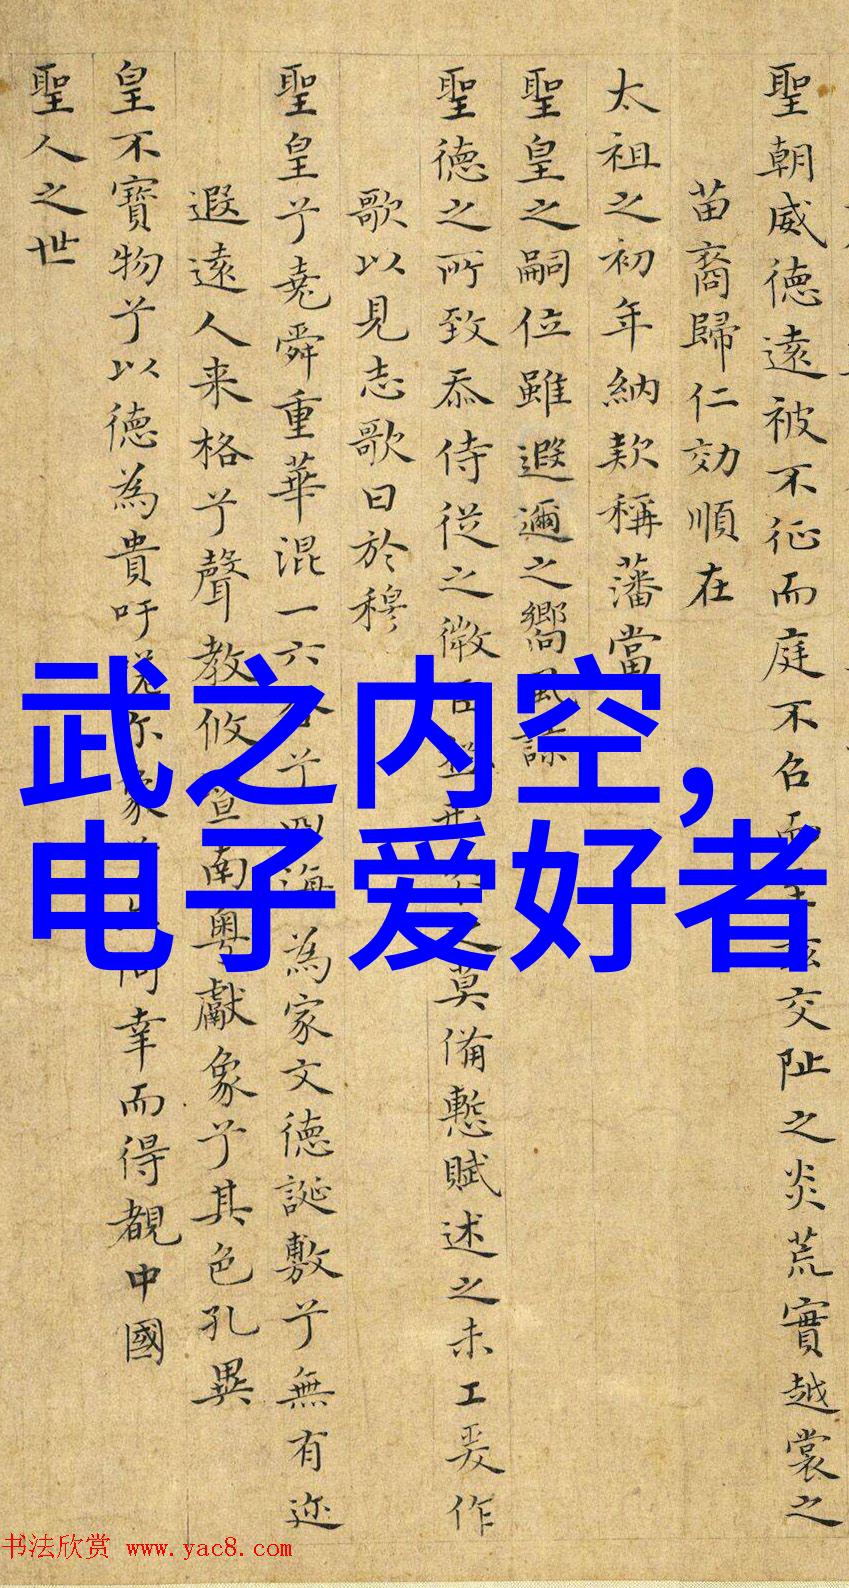 聖朝威德遠被不征而庭不召而
交阯之炎荒實越裳之
苗裔歸仁効順在
太祖之初年納款稱藩當
聖皇之嗣位雖遐邇之嚮風諒
聖德之所致忝侍從之微
莫俻慙賦述之未工爰作
歌以見志歌曰於穆
聖皇兮堯舜重華混一六合兮四海為家文德誕敷兮無有迩
遐遠人来格兮聲教攸暨南粤獻象兮其色孔異
皇不寶物兮以德為貴吁嗟尔象
何幸而得覩中國
聖人之世
武之内空,
电子爱好者
书法欣赏 www.yac8.com